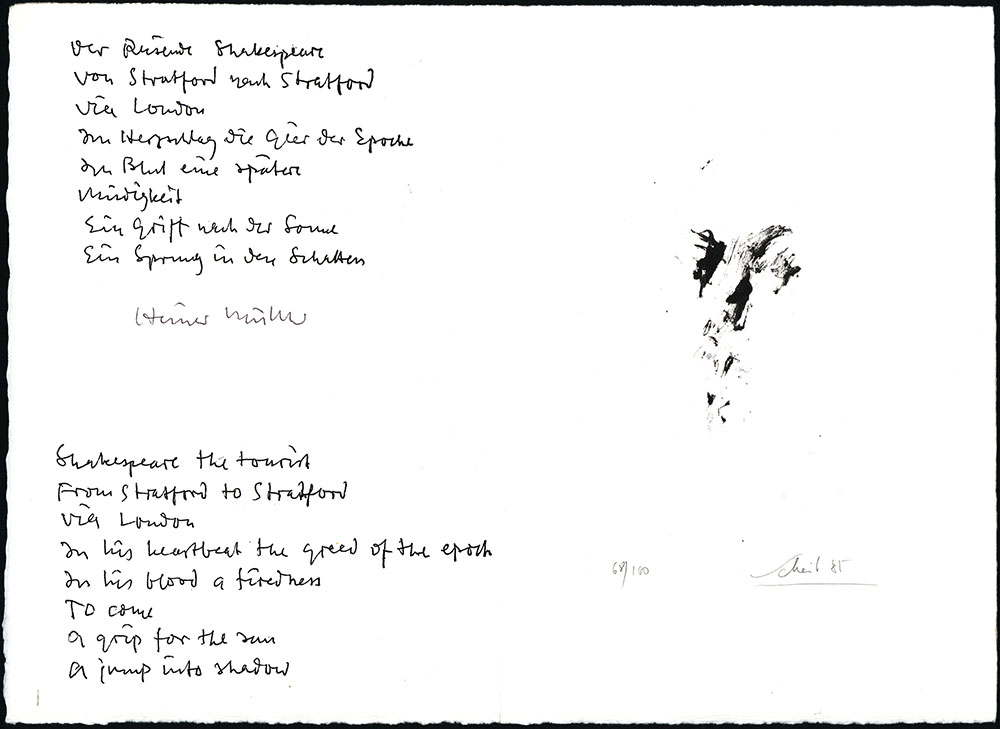 Der Reisende Shakespeare
von Stratford nach Stratford
via London
Im Herzschlag die Gier der Epoche
Im Blut eine spätere
Müdigkeit
Ein Griff nach der Sonne
Ein Sprung in den Schatten
Heiner Müller
Shakespeare the tourist
From Stratford to Stratford
via London
In his heartbeat the greed of the epoch
In his blood a tiredness
TO come
a grip for the sun
a jump into shadow
68/100
85